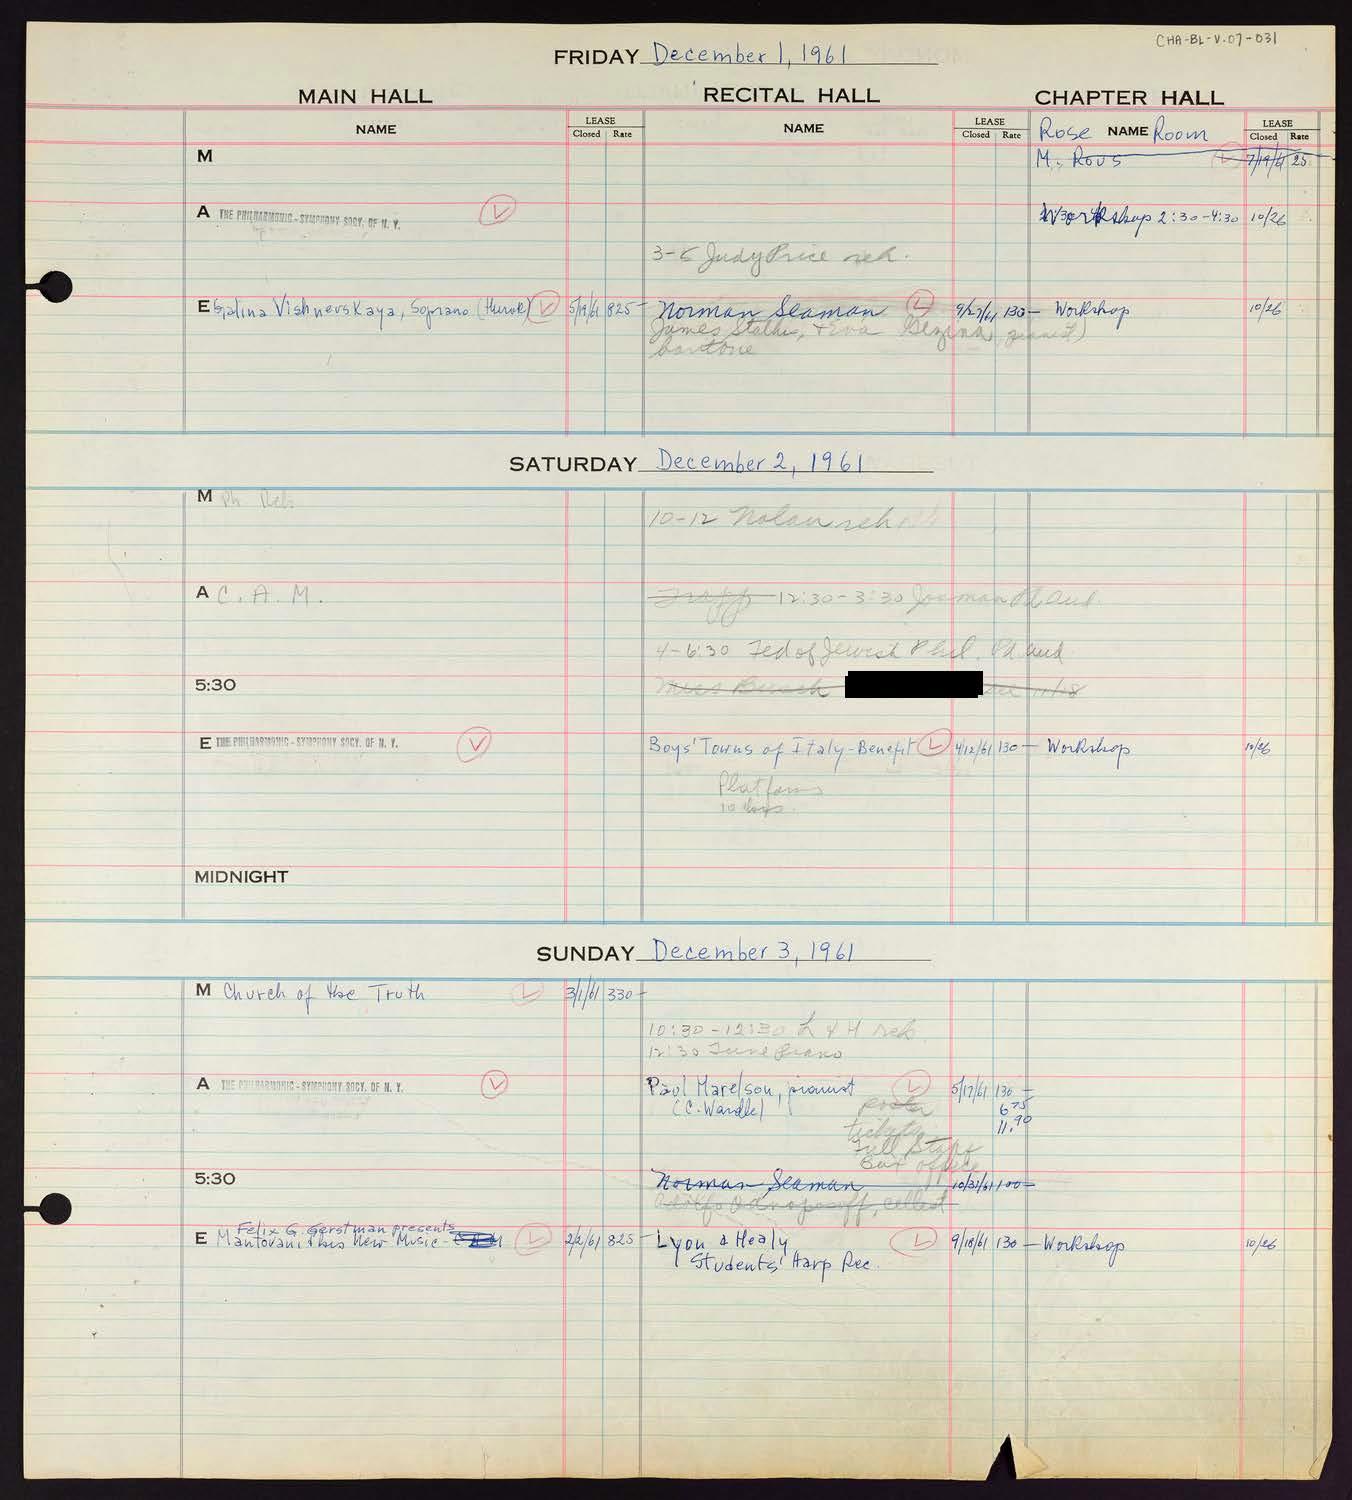 CHA-BL-V.07-031
FRIDAY December 1, 1961
MAIN HALL RECITAL HALL CHAPTER HALL
NAME LEASE Closed Rate NAME LEASE Closed Rate Rose NAME Room LEASE Closed Rate
M M. Rous 7/19/61 25-
A THE PHILHARMONIC-SYMPHONY SOCY. OF N. Y. Workshop 2:30-4:30 10/26
3-5 Judy Price reh.
E Galina Vishnevskaya, Soprano (Hurok) 5/19/61 825- Norman Seaman 9/27/61 130- Workshop 10/26
James + Eva pianist)
baritone
SATURDAY December 2, 1961
M Ph Reh.
10-12 Nolan reh
A C. A. M. 12:30-3:30
4-6:30 Fed of Jewish Phil. Pd Aud
5:30 Miss 11/18
E THE PHILHARMONIC-SYMPHONY SOCY. OF N. Y. Boys' Towns of Italy-Benefit 4/12/61 130- Workshop 10/26
Platform
10
MIDNIGHT
SUNDAY December 3, 1961
M Church of the Truth 3/1/61 330-
10:30-12:30 L & H reh.
12:30 Tune Piano
A THE PHILHARMONIC-SYMPHONY SOCY. OF N. Y. Paul Marelson, pianist 5/17/61 130-
(C. Wardle) 6 75
11.90
Full Staff
Box office
5:30 Norman Seaman 10/31/61 100-
cellist
Felix G. Gerstman presents
E Mantovani & his New Music- 2/2/61 825- Lyon & Healy 9/18/61 130- Workshop 10/26
Students' Harp Rec.